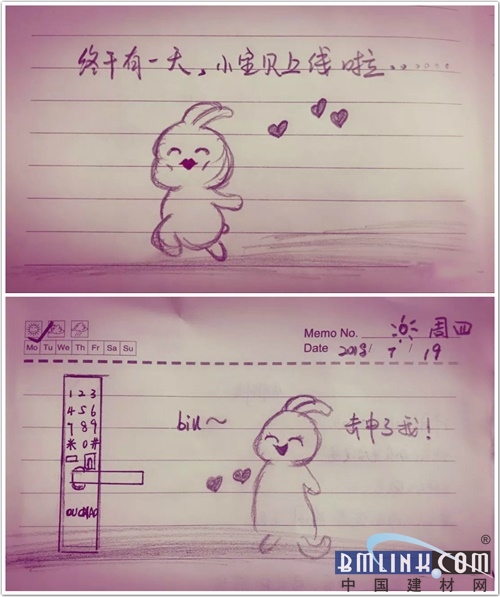 终于有一天，小宝贝上线啦......
Mo Tu We Th Fr Sa Su
Memo No. 6 周四
Date 2018/7/19
1 2 3
4 5 6
7 8 9
* 0 #
biu~
击中了我!
BMLINK.COM®
中国建材网